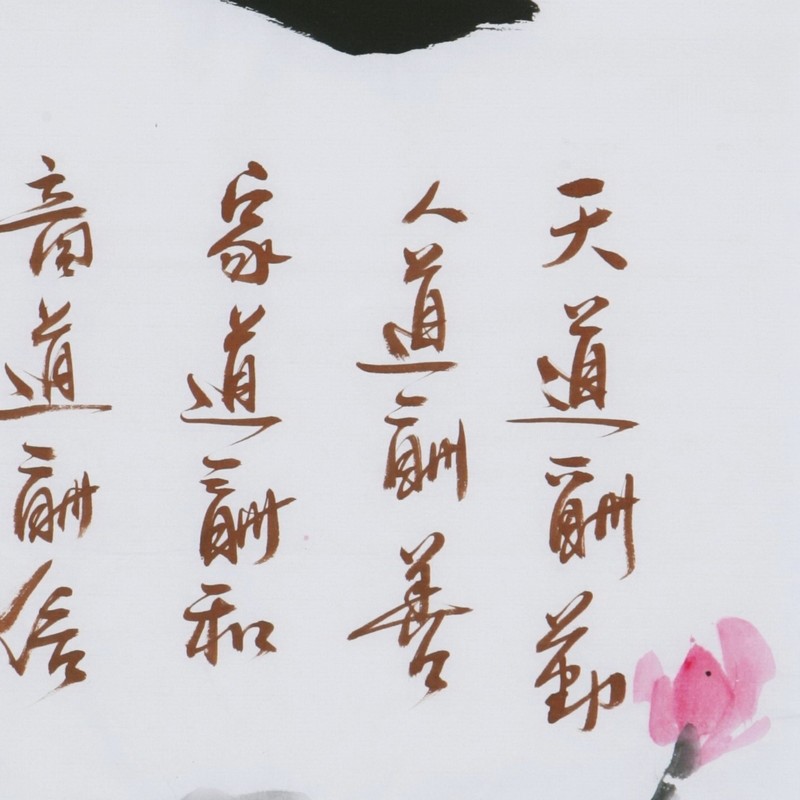 天道酬勤
人道酬善
家道酬和
商道酬信